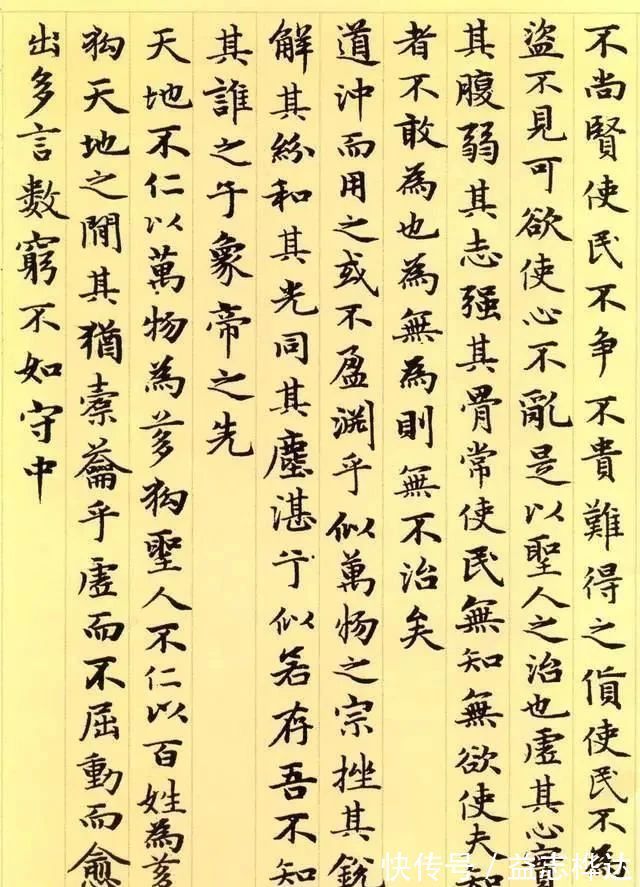 不尚賢使民不争不貴難得之貨使民不為
盜不見可欲使心不亂是以聖人之治也虛其心
其腹弱其志强其骨常使民無知無欲使夫
者不敢為也為無為則無不治矣
道沖而用之或不盈渊乎似萬物之宗挫其銳
解其紛和其光同其塵湛兮似若存吾不知
其誰之子象帝之先
天地不仁以萬物為芻狗聖人不仁以百姓為芻
狗天地之間其猶橐籥乎虛而不屈動而愈
出多言數窮不如守中
快传号／益志桦达